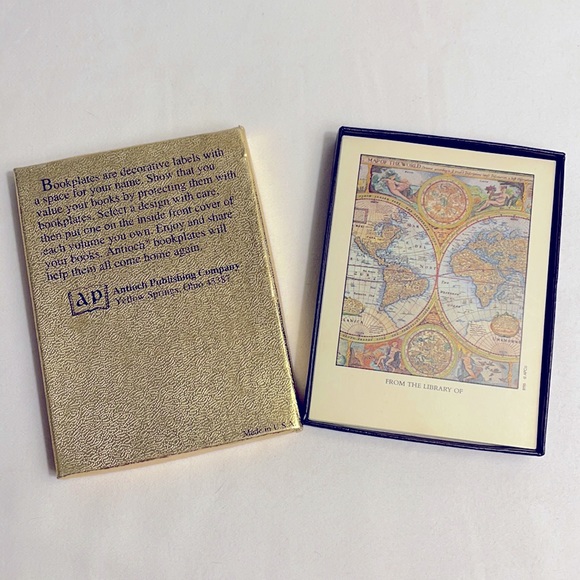 Bookplates are decorative labels with
a space for your name. Show that you
value your books by protecting them with
bookplates. Select a design with care,
then put one on the inside front cover of
each volume you own. Enjoy and share
your books. Antioch® bookplates will
help them all come home again.
ap
Antioch Publishing Company
Yellow Springs, Ohio 45387
Made in U.S.A.
MAP OF THE WORLD
FROM THE LIBRARY OF